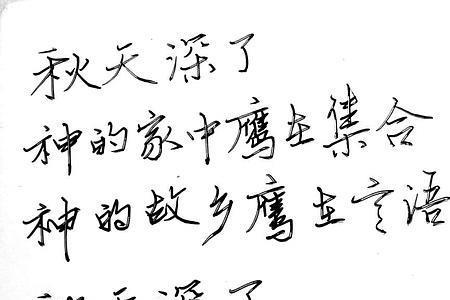 秋天深了
神的家中鹰在集合
神的故乡鹰在言语
秋天深了